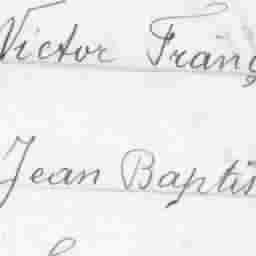 Victor Franç
Jean Baptis